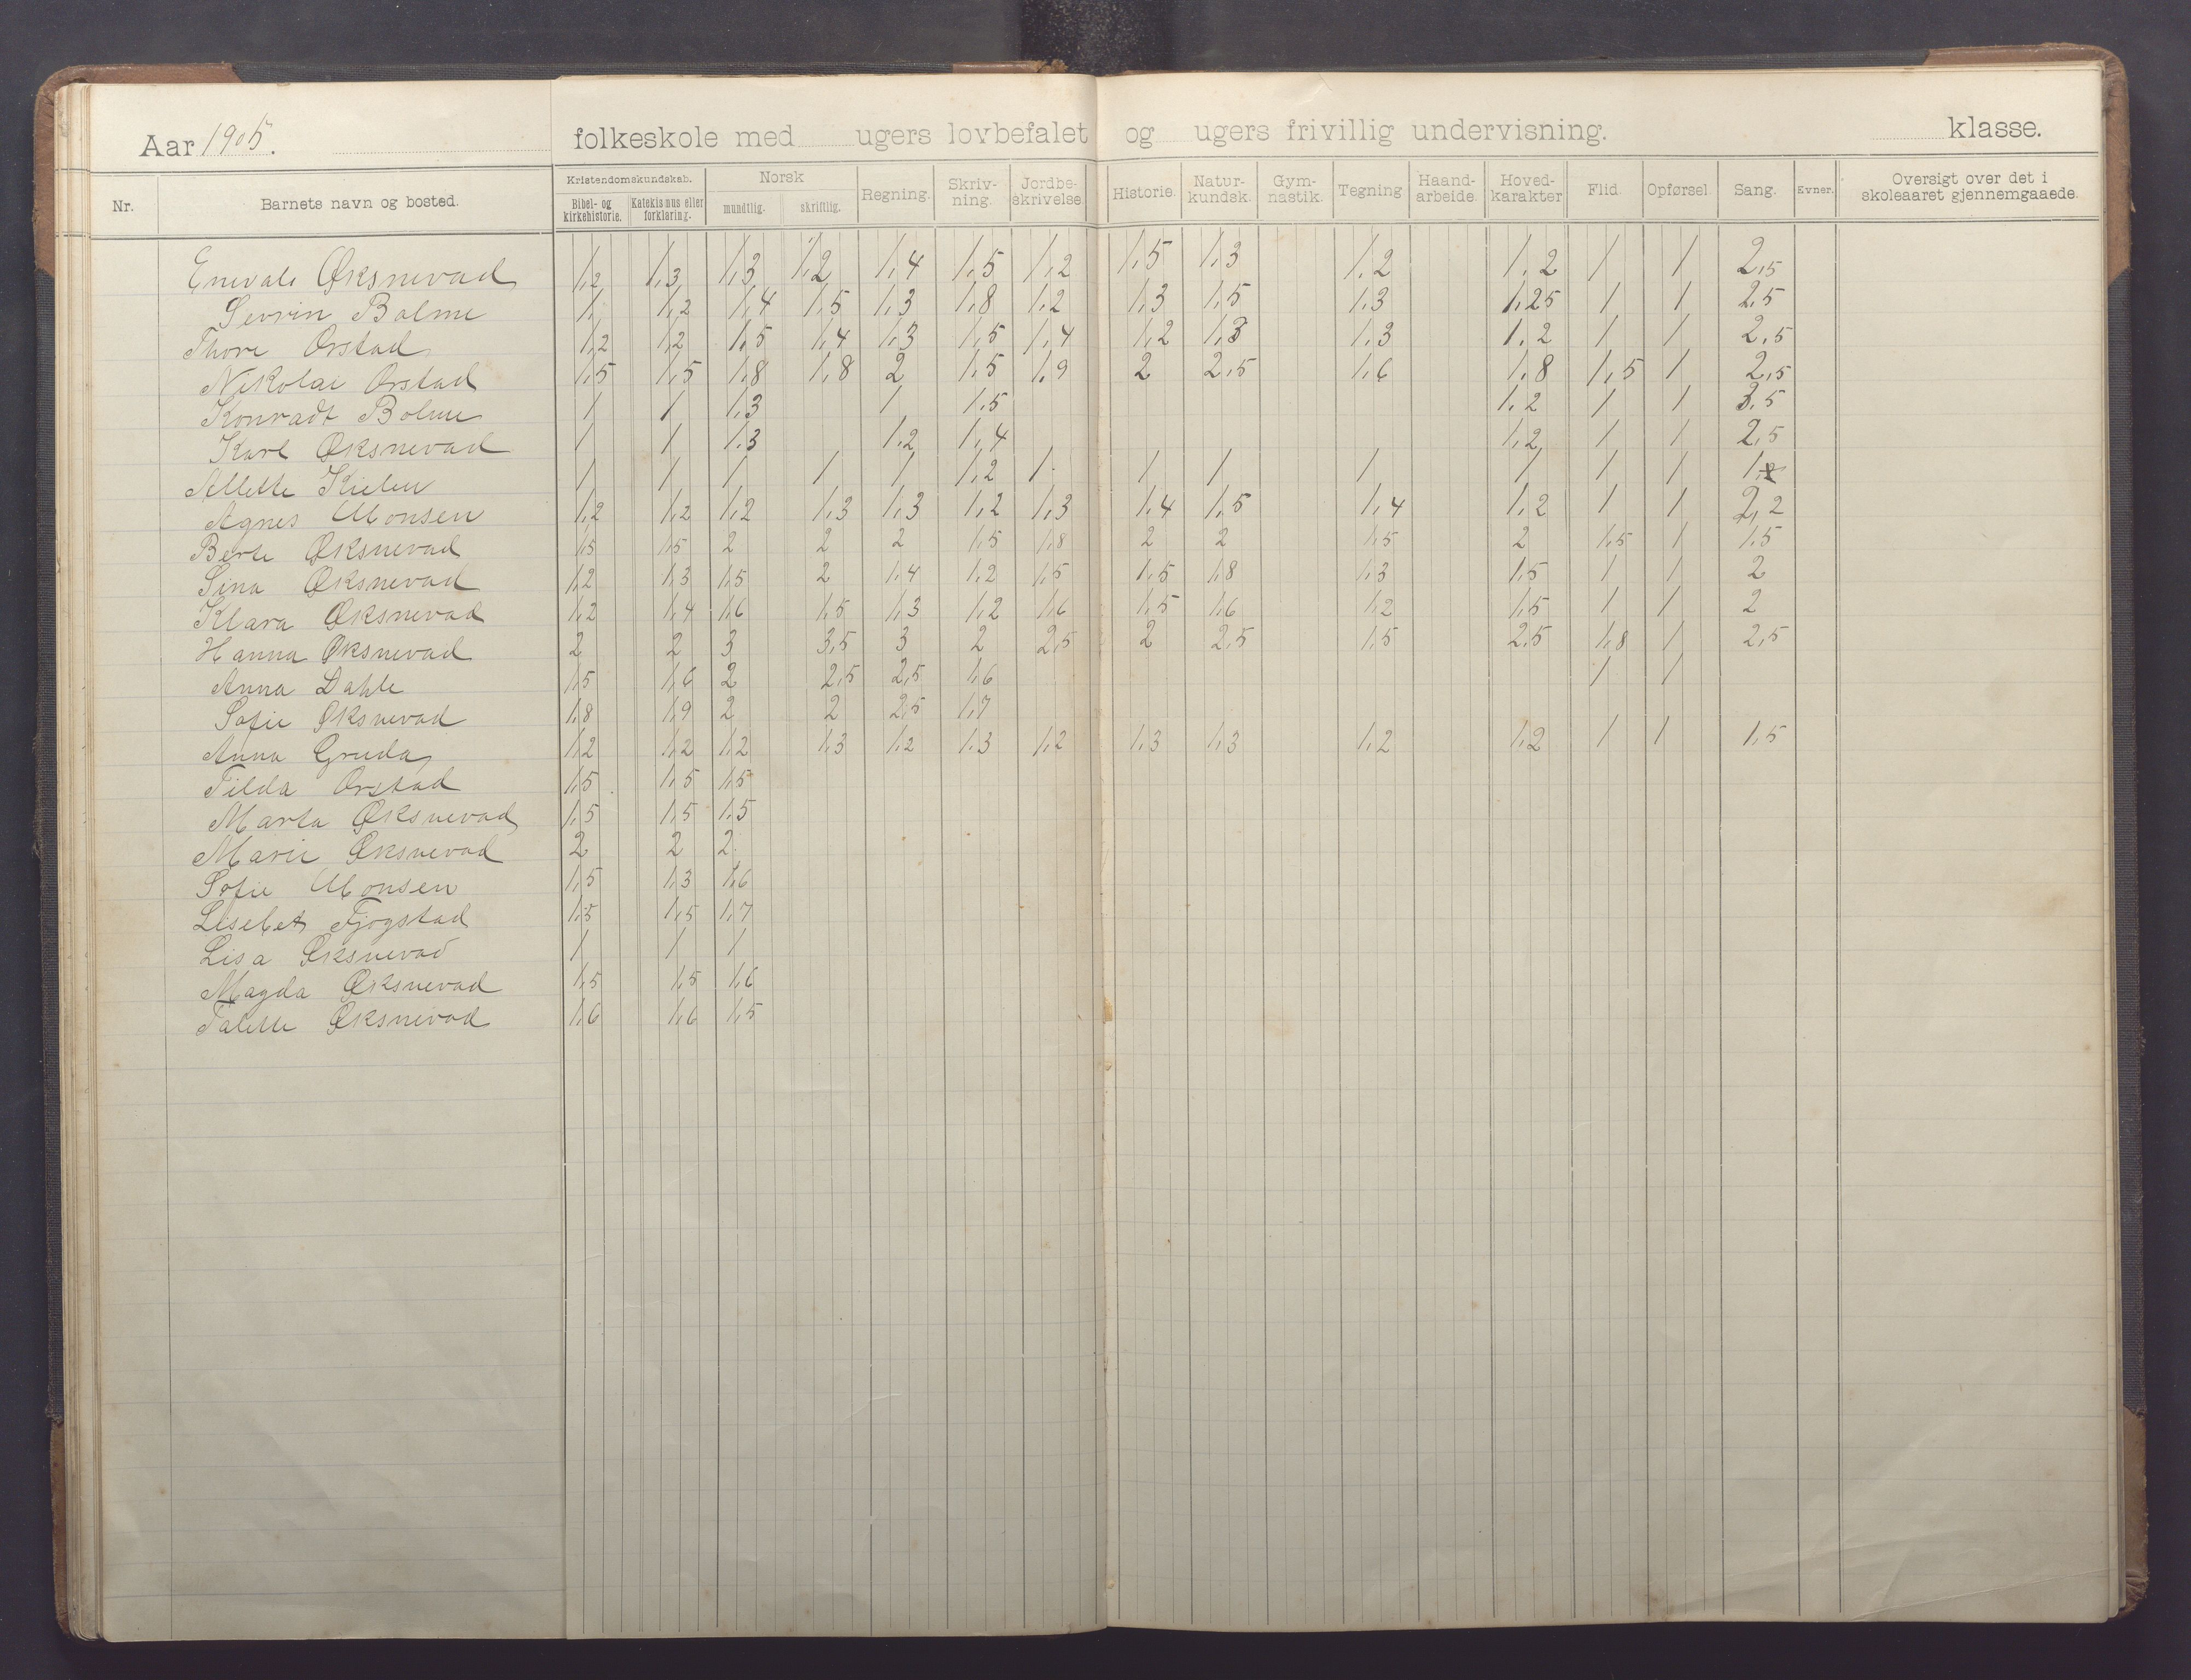 Aar 1905. folkeskole med ugers lovbefalet og ugers frivillig undervisning. klasse.
Nr. Barnets navn og bosted. Kristendomskundskab. Bibel- og kirkehistorie. Katekismus eller forklaring. Norsk mundtlig. skriftlig. Regning. Skrivning. Jordbeskrivelse. Historie. Naturkundsk. Gymnastik. Tegning Haandarbeide. Hovedkarakter Flid. Opførsel. Sang. Evner. Oversigt over det i skoleaaret gjennemgaaede.
Enevald Øksnevad 1,2 1,3 1,3 1,2 1,4 1,5 1,2 1,5 1,3 1,2 1,2 1 1 2,5
Sevrin Bolme 1, 1,2 1,4 1,5 1,3 1,8 1,2 1,3 1,5 1,3 1,25 1 1 2,5
Thore Orstad 1,2 1,2 1,5 1,4 1,3 1,5 1,4 1,2 1,3 1,3 1,2 1 1 2,5
Nikolai Orstad 1,5 1,5 1,8 1,8 2 1,5 1,9 2 2,5 1,6 1,8 1,5 1 2,5
Konradt Bolme 1 1 1,3 1 1,5 1,2 1 1 3,5
Karl Øksnevad 1 1 1,3 1,2 1,4 1,2 1 1 2,5
Allette Kielen 1 1 1 1 1 1,2 1 1 1 1 1 1 1
Agnes Monsen 1,2 1,2 1,2 1,3 1,3 1,2 1,3 1,4 1,5 1,4 1,2 1 1 2,2
Berte Øksnevad 1,5 1,5 2 2 2 1,5 1,8 2 2 1,5 2 1,5 1 1,5
Sina Øksnevad 1,2 1,3 1,5 2 1,4 1,2 1,5 1,5 1,8 1,3 1,5 1 1 2
Klara Øksnevad 1,2 1,4 1,6 1,5 1,3 1,2 1,6 1,5 1,6 1,2 1,5 1 1 2
Hanna Øksnevad 2 2 3 3,5 3 2 2,5 2 2,5 1,5 2,5 1,8 1 2,5
Anna Dahle 1,5 1,6 2 2,5 2,5 1,6 1 1
Sofie Øksnevad 1,8 1,9 2 2 2,5 1,7
Anna Gruda 1,2 1,2 1,2 1,3 1,2 1,3 1,2 1,3 1,3 1,2 1,2 1 1 1,5
Tilda Orstad 1,5 1,5 1,5
Marta Øksnevad 1,5 1,5 1,5
Marie Øksnevad 2 2 2
Sofie Monsen 1,5 1,3 1,6
Lisebet Fjogstad 1,5 1,5 1,7
Lisa Øksnevad 1 1 1
Magda Øksnevad 1,5 1,5 1,6
Talette Øksnevad 1,6 1,6 1,5